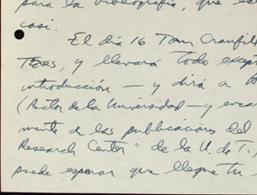 para la bibliografía, que es
casi.
El día 16 Tom Cranfill
Texas, y llevará todo excep
introducción — y dirá a
(Rector de la Universidad — y encar
mento de las publicaciones del
Research Center" de la U. de T.,
puede esperar que llegue tu